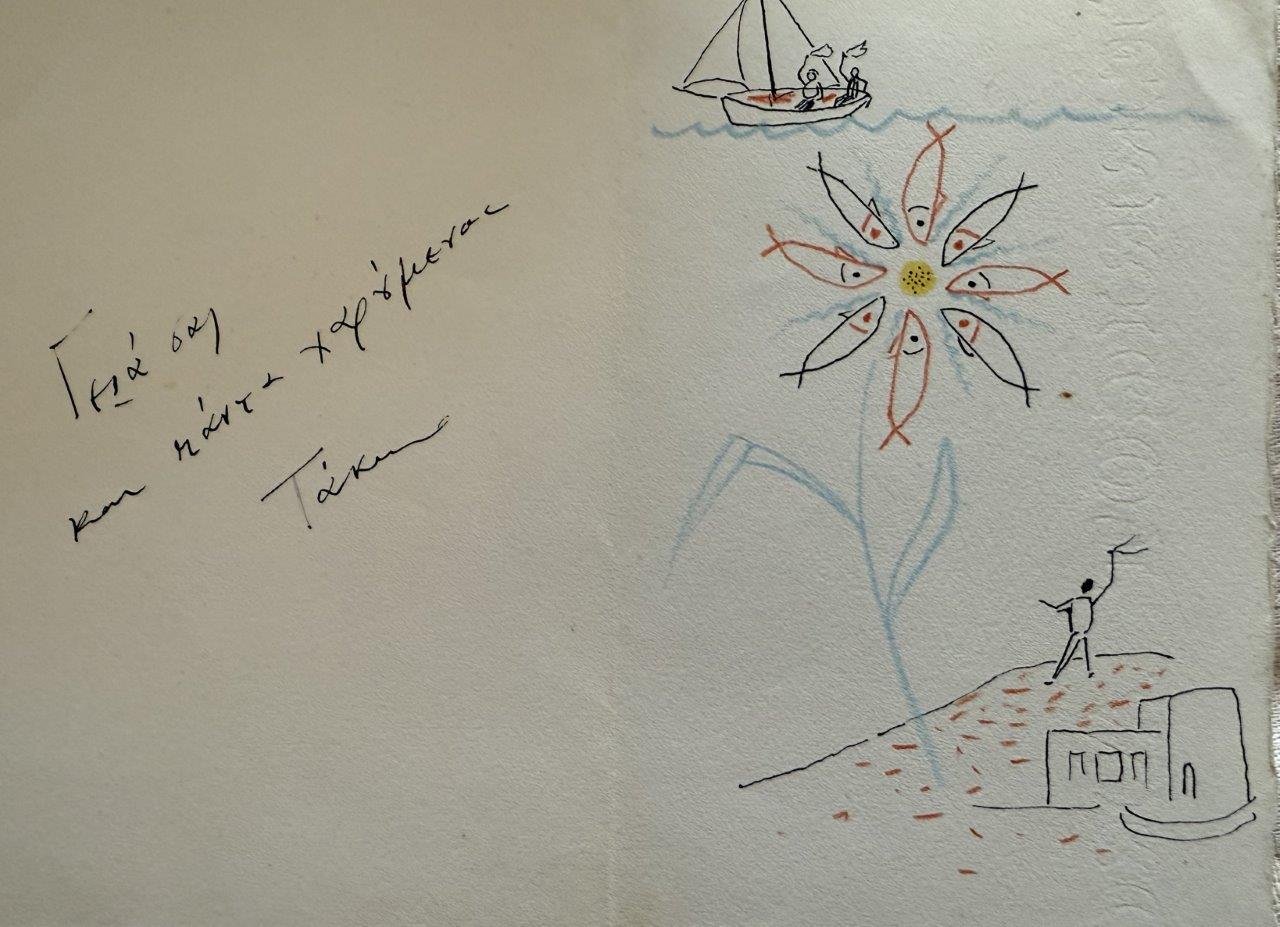 Γειά σας
και πάντα χαρούμενοι
Τάκης